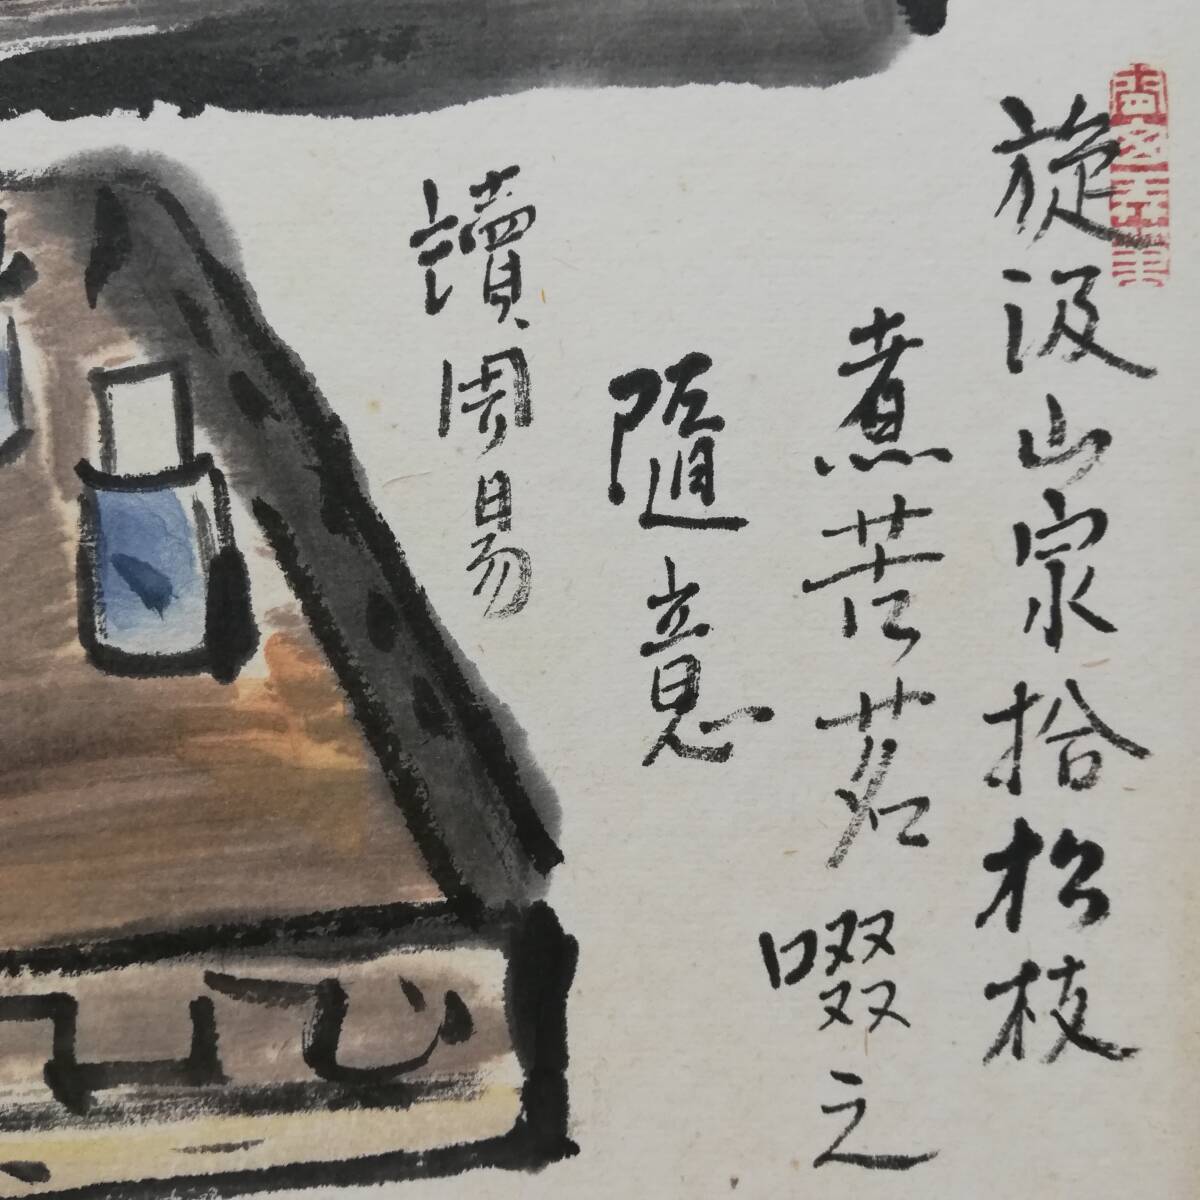 旋汲山泉拾松枝
煮苦茗啜之
隨意
讀周易